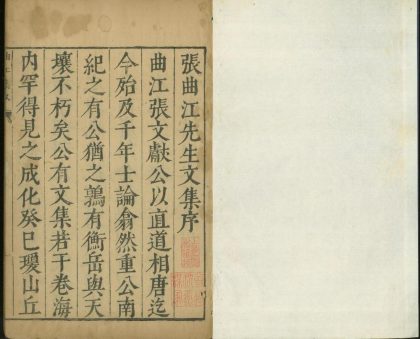 張曲江先生文集序
曲江張文獻公以直道相唐迄
今殆及千年士論翕然重公南
紀之有公猶之鶉有衡岳與天
壤不朽矣公有文集若干卷海
內罕得見之成化癸巳瓊山丘